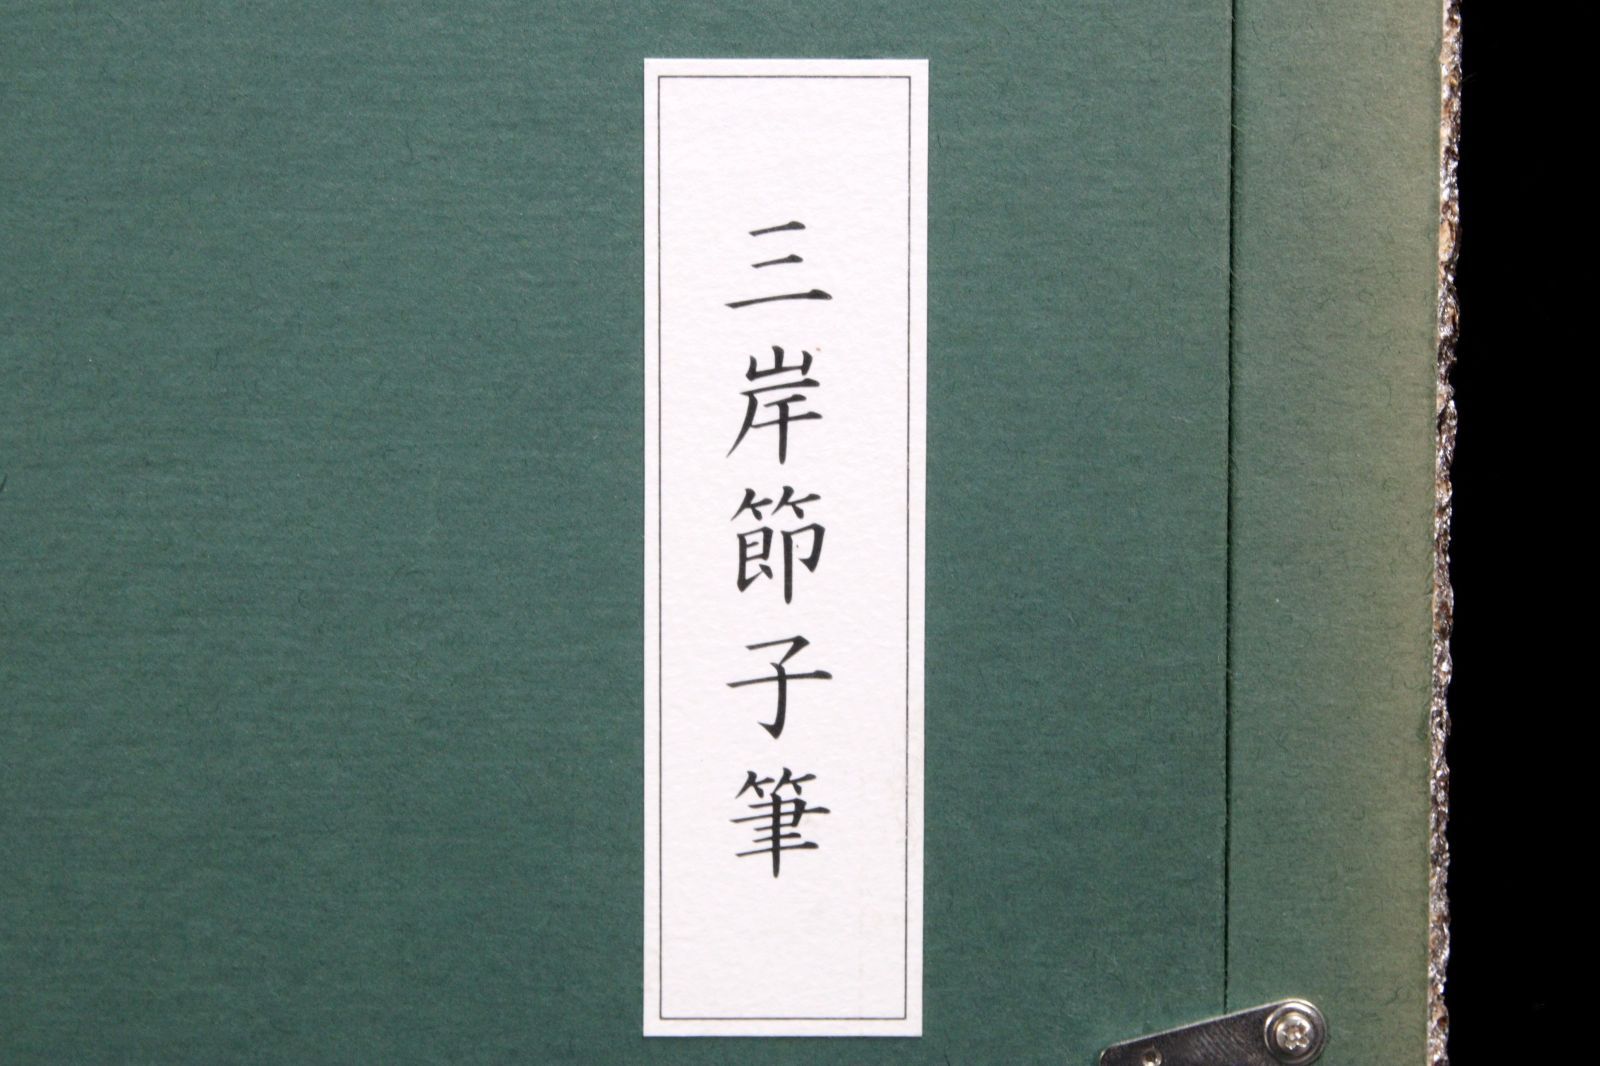 三岸節子筆